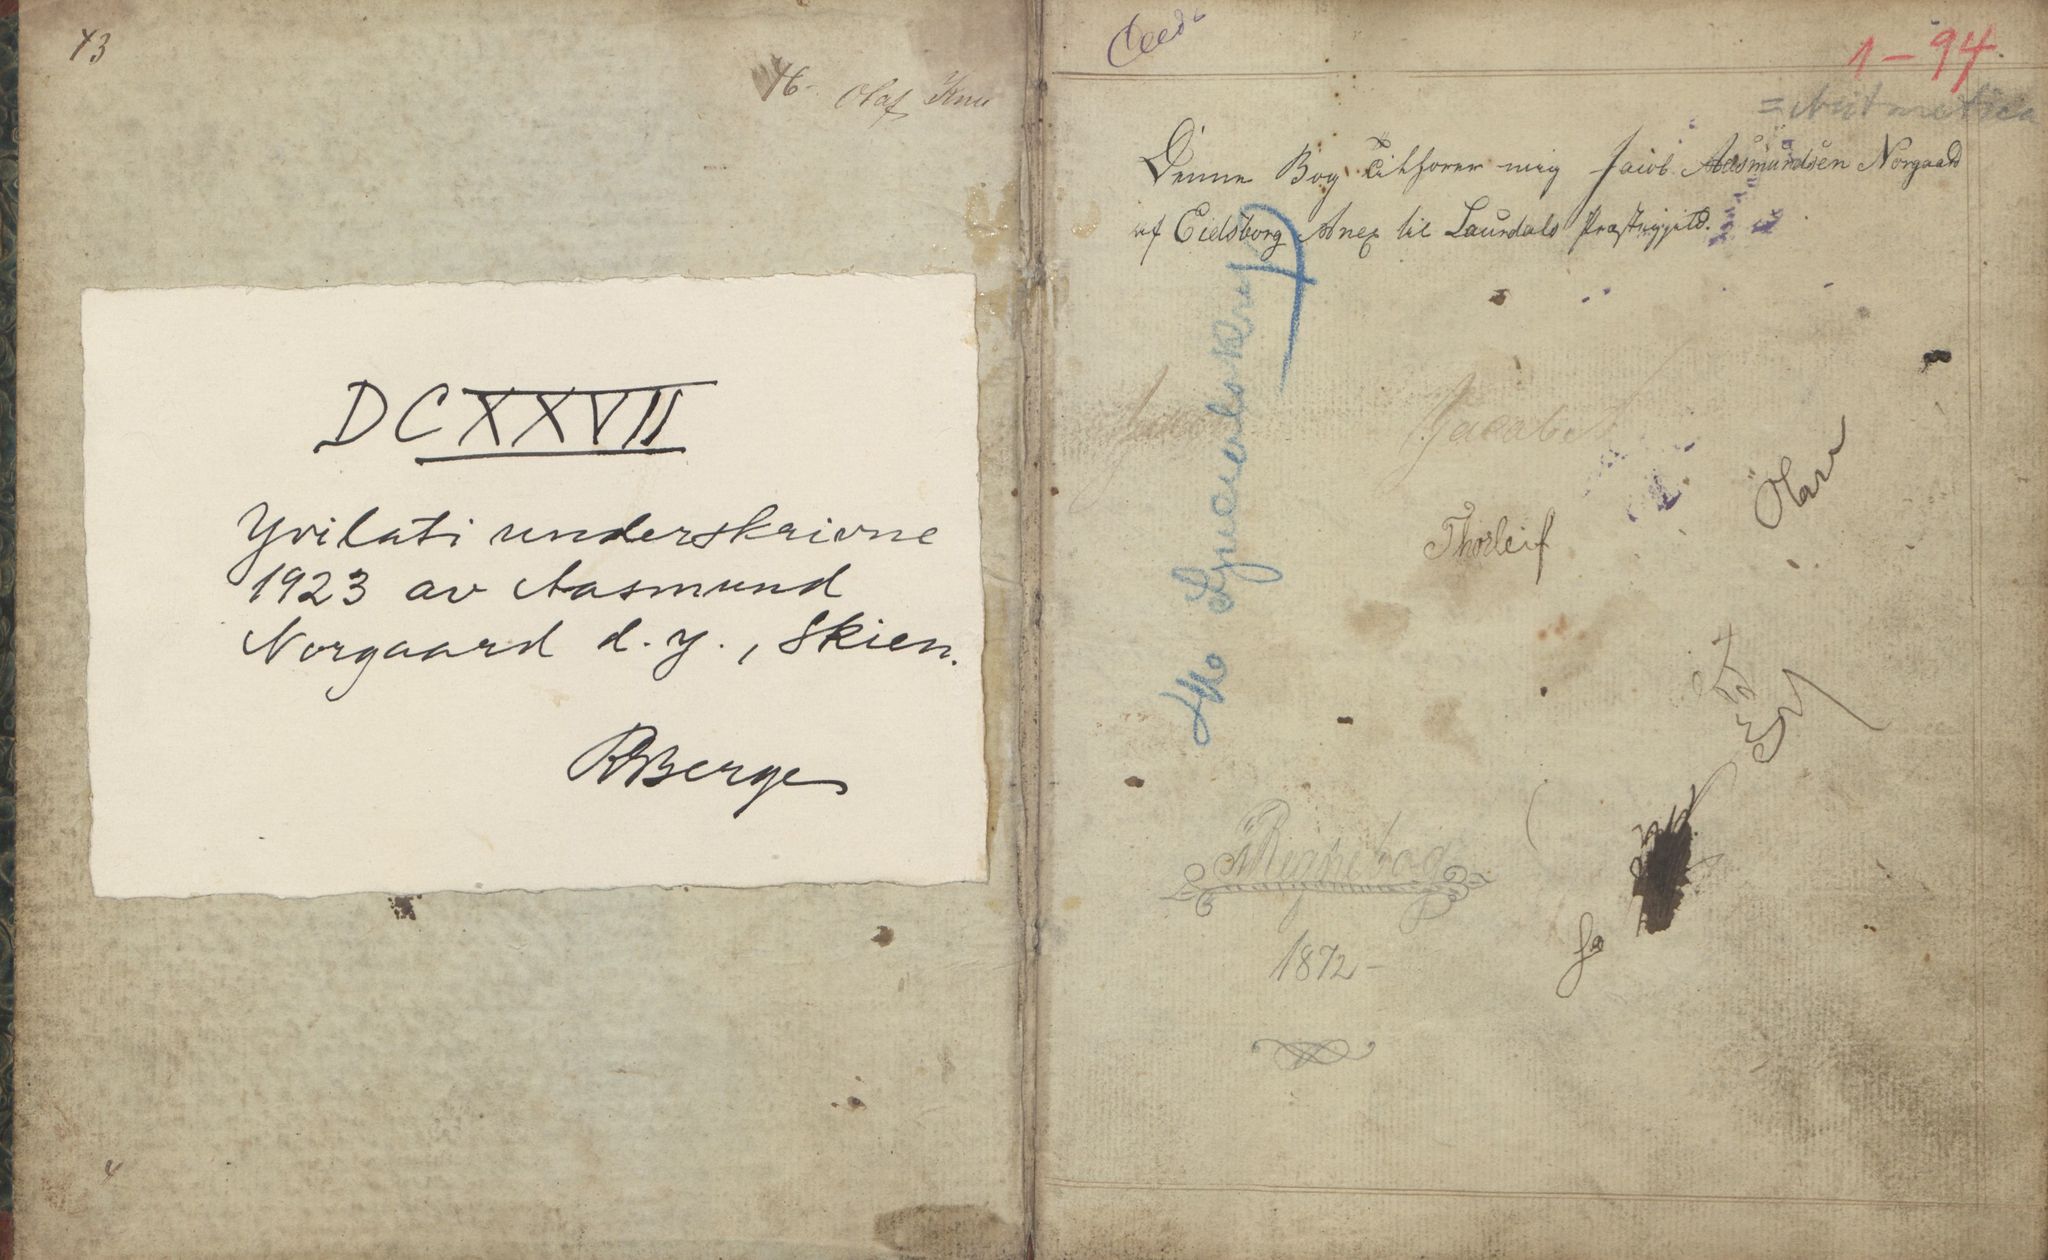 43
46- Olaf Knu
DCXXVII
Yvilati underskrivne
1923 av Aasmund
Norgaard d.y., Skien.
RBerge
1-94.
= Aritmetica
Denne Bog tilhører mig Jacob Aasmundsen Norgaard
af Eidsborg Anex til Laurdals Præstegjeld.
Jacob
Thorleif
Olav
Regnebog
1872-